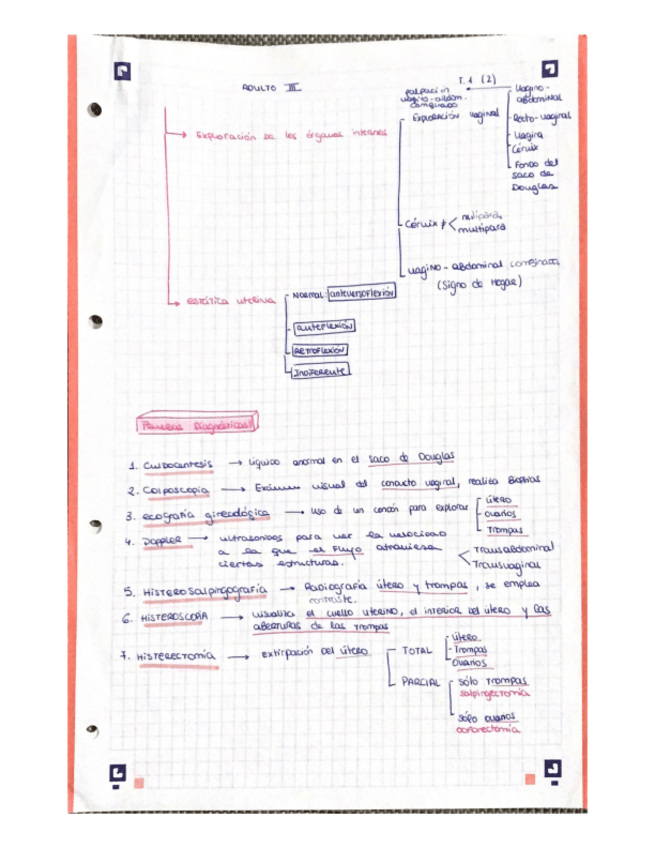 ADULTO III
T.1 (2)
palpación
vagino-abdom.
combinada
Exploración vaginal
Vagino-
abdominal
Recto-vaginal
Vagina
Cérvix
Fondo del
saco de
Douglas
Exploración de los órganos internos
Cérvix ≠ < nulípara,
multípara
vagino-abdominal combinada
(Signo de Hegar)
estática uterina
Normal: anteversoflexión
anteflexión
Retroflexión
Indiferente
Pruebas Diagnósticas
1. Culdocentesis → líquido anormal en el saco de Douglas
2. Colposcopia → Exámen visual del conducto vaginal, realiza Biopsias
3. ecografía ginecológica → uso de un cordón para explorar
útero
ovarios
Trompas
4. Doppler → ultrasonidos para ver la velocidad
a la que el Flujo atraviesa
ciertas estructuras.
< Transabdominal
Transvaginal
5. Histerosalpingografía → Radiografía útero y trompas, se emplea
contraste.
6. Histeroscopia → visualiza el cuello uterino, el interior del útero y las
aberturas de las trompas
7. Histerectomía → extirpación del útero
TOTAL
útero
Trompas
Ovarios
PARCIAL
sólo trompas
salpingectomía
sólo ovarios
ooforectomía